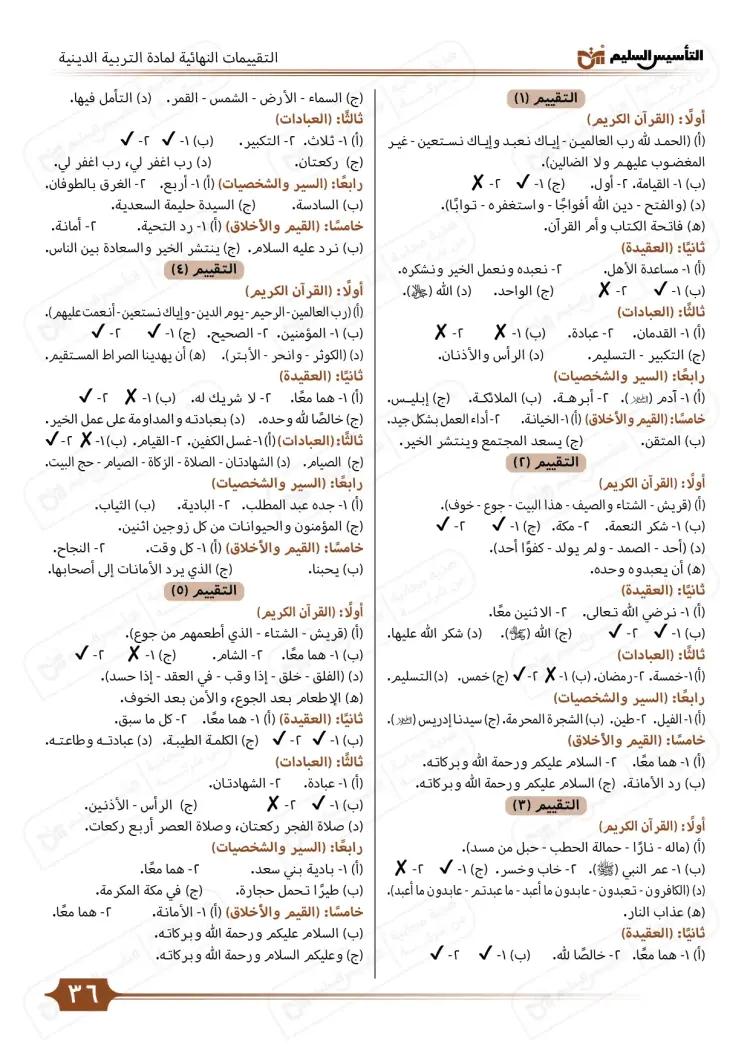 التأسيس السليم
التقييمات النهائية لمادة التربية الدينية
التقييم (١)
أولًا: (القرآن الكريم)
(أ) (الحمد لله رب العالمين - إياك نعبد وإياك نستعين - غير
المغضوب عليهم ولا الضالين).
(ب) ١- القيامة. ٢- أول. (ج) ١- ✓ ٢- ✗
(د) (والفتح - دين الله أفواجًا - واستغفره - توابًا).
(ه) فاتحة الكتاب وأم القرآن.
ثانيًا: (العقيدة)
(أ) ١- مساعدة الأهل. ٢- نعبده ونعمل الخير ونشكره.
(ب) ١- ✓ ٢- ✗ (ج) الواحد. (د) الله (ﷻ).
ثالثًا: (العبادات)
(أ) ١- القدمان. ٢- عبادة. (ب) ١- ✗ ٢- ✗
(ج) التكبير - التسليم. (د) الرأس والأذنان.
رابعًا: (السير والشخصيات)
(أ) ١- آدم (). ٢- أبرهة. (ب) الملائكة. (ج) إبليس.
خامسًا: (القيم والأخلاق) (أ) ١- الخيانة. ٢- أداء العمل بشكل جيد.
(ب) المتقن. (ج) يسعد المجتمع وينتشر الخير.
التقييم (٢)
أولًا: (القرآن الكريم)
(أ) (قريش - الشتاء والصيف - هذا البيت - جوع - خوف).
(ب) ١- شكر النعمة. ٢- مكة. (ج) ١- ✓ ٢- ✓
(د) (أحد - الصمد - ولم يولد - كفوًا أحد).
(ه) أن يعبدوه وحده.
ثانيًا: (العقيدة)
(أ) ١- نرضي الله تعالى. ٢- الاثنين معًا.
(ب) ١- ✓ ٢- ✓ (ج) الله (ﷻ). (د) شكر الله عليها.
ثالثًا: (العبادات)
(أ) ١- خمسة. ٢- رمضان. (ب) ١- ✗ ٢- ✓ (ج) خمس. (د) التسليم.
رابعًا: (السير والشخصيات)
(أ) ١- الفيل. ٢- طين. (ب) الشجرة المحرمة. (ج) سيدنا إدريس ().
خامسًا: (القيم والأخلاق)
(أ) ١- هما معًا. ٢- السلام عليكم ورحمة الله وبركاته.
(ب) رد الأمانة. (ج) السلام عليكم ورحمة الله وبركاته.
التقييم (٣)
أولًا: (القرآن الكريم)
(أ) (ماله - نارًا - حمالة الحطب - حبل من مسد).
(ب) ١- عم النبي (ﷺ). ٢- خاب وخسر. (ج) ١- ✓ ٢- ✗
(د) (الكافرون - تعبدون - عابدون ما أعبد - ما عبدتم - عابدون ما أعبد).
(ه) عذاب النار.
ثانيًا: (العقيدة)
(أ) ١- هما معًا. ٢- خالصًا لله. (ب) ١- ✓ ٢- ✓
(ج) السماء - الأرض - الشمس - القمر. (د) التأمل فيها.
ثالثًا: (العبادات)
(أ) ١- ثلاث. ٢- التكبير. (ب) ١- ✓ ٢- ✓
(ج) ركعتان. (د) رب اغفر لي، رب اغفر لي.
رابعًا: (السير والشخصيات) (أ) ١- أربع. ٢- الغرق بالطوفان.
(ب) السادسة. (ج) السيدة حليمة السعدية.
خامسًا: (القيم والأخلاق) (أ) ١- رد التحية. ٢- أمانة.
(ب) نرد عليه السلام. (ج) ينتشر الخير والسعادة بين الناس.
التقييم (٤)
أولًا: (القرآن الكريم)
(أ) (رب العالمين - الرحيم - يوم الدين - وإياك نستعين - أنعمت عليهم).
(ب) ١- المؤمنين. ٢- الصحيح. (ج) ١- ✓ ٢- ✓
(د) (الكوثر - وانحر - الأبتر). (ه) أن يهدينا الصراط المستقيم.
ثانيًا: (العقيدة)
(أ) ١- هما معًا. ٢- لا شريك له. (ب) ١- ✗ ٢- ✓
(ج) خالصًا لله وحده. (د) بعبادته والمداومة على عمل الخير.
ثالثًا: (العبادات) (أ) ١- غسل الكفين. ٢- القيام. (ب) ١- ✗ ٢- ✓
(ج) الصيام. (د) الشهادتان - الصلاة - الزكاة - الصيام - حج البيت.
رابعًا: (السير والشخصيات)
(أ) ١- جده عبد المطلب. ٢- البادية. (ب) الثياب.
(ج) المؤمنون والحيوانات من كل زوجين اثنين.
خامسًا: (القيم والأخلاق) (أ) ١- كل وقت. ٢- النجاح.
(ب) يحبنا. (ج) الذي يرد الأمانات إلى أصحابها.
التقييم (٥)
أولًا: (القرآن الكريم)
(أ) (قريش - الشتاء - الذي أطعمهم من جوع).
(ب) ١- هما معًا. ٢- الشام. (ج) ١- ✗ ٢- ✓
(د) (الفلق - خلق - إذا وقب - في العقد - إذا حسد).
(ه) الإطعام بعد الجوع، والأمن بعد الخوف.
ثانيًا: (العقيدة) (أ) ١- هما معًا. ٢- كل ما سبق.
(ب) ١- ✓ ٢- ✓ (ج) الكلمة الطيبة. (د) عبادته وطاعته.
ثالثًا: (العبادات)
(أ) ١- عبادة. ٢- الشهادتان.
(ب) ١- ✓ ٢- ✗ (ج) الرأس - الأذنين.
(د) صلاة الفجر ركعتان، وصلاة العصر أربع ركعات.
رابعًا: (السير والشخصيات)
(أ) ١- بادية بني سعد. ٢- هما معًا.
(ب) طيرًا تحمل حجارة. (ج) في مكة المكرمة.
خامسًا: (القيم والأخلاق) (أ) ١- الأمانة. ٢- هما معًا.
(ب) السلام عليكم ورحمة الله وبركاته.
(ج) وعليكم السلام ورحمة الله وبركاته.
٣٦